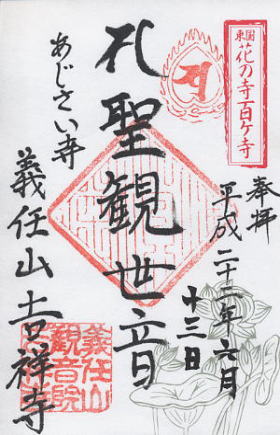 東国
花の寺百ケ寺
奉拝
平成二十二年六月
十三日
札聖観世音
あじさい寺
義任山吉祥寺
義任山
観音院